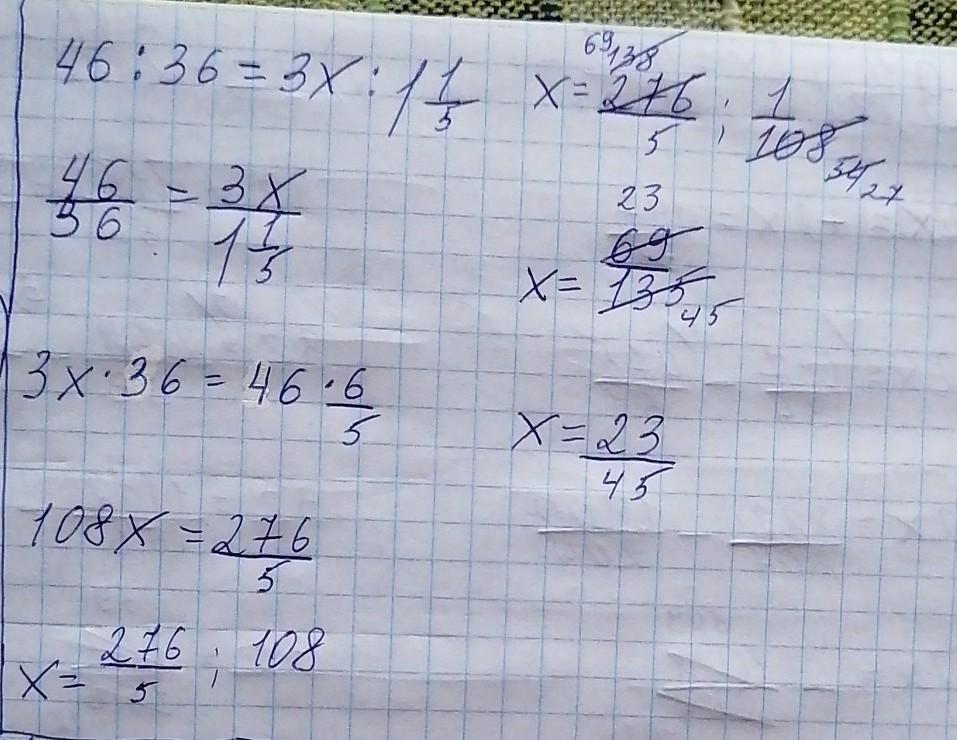 46 : 36 = 3x : 1 1/5
46/36 = 3x/1 1/5
3x · 36 = 46 · 6/5
108x = 276/5
x = 276/5 ; 108
69 138
x = 276/5 ; 1/108 54 27
23
x = 69/135 45
x = 23/45